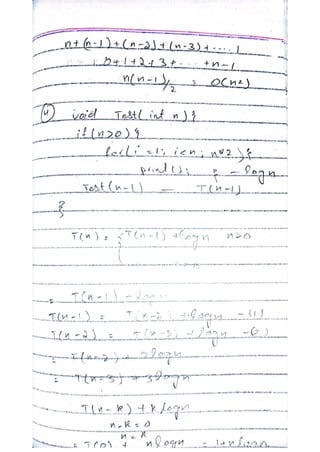 n+(n-1)+(n-2)+(n-3)+....1
0+1+2+3+ .... +n-1
n(n-1)/2 = O(n²)
(4) void Test( int n){
if (n>0) {
for(i=1; i<n; n*2 ){
print(i); } - logn
Test(n-1) - T(n-1)
}
T(n) = { T(n-1) + logn n>0
= T(n-1) + logn
T(n-1) = T(n-2) + logn -(1)
T(n-2) = T(n-3) + logn -(2)
= T(n-2) + 2logn
= T(n-3) + 3logn
T(n-k) + k logn
n-k = 0
n = k
= T(0) + nlogn = 1+nlogn